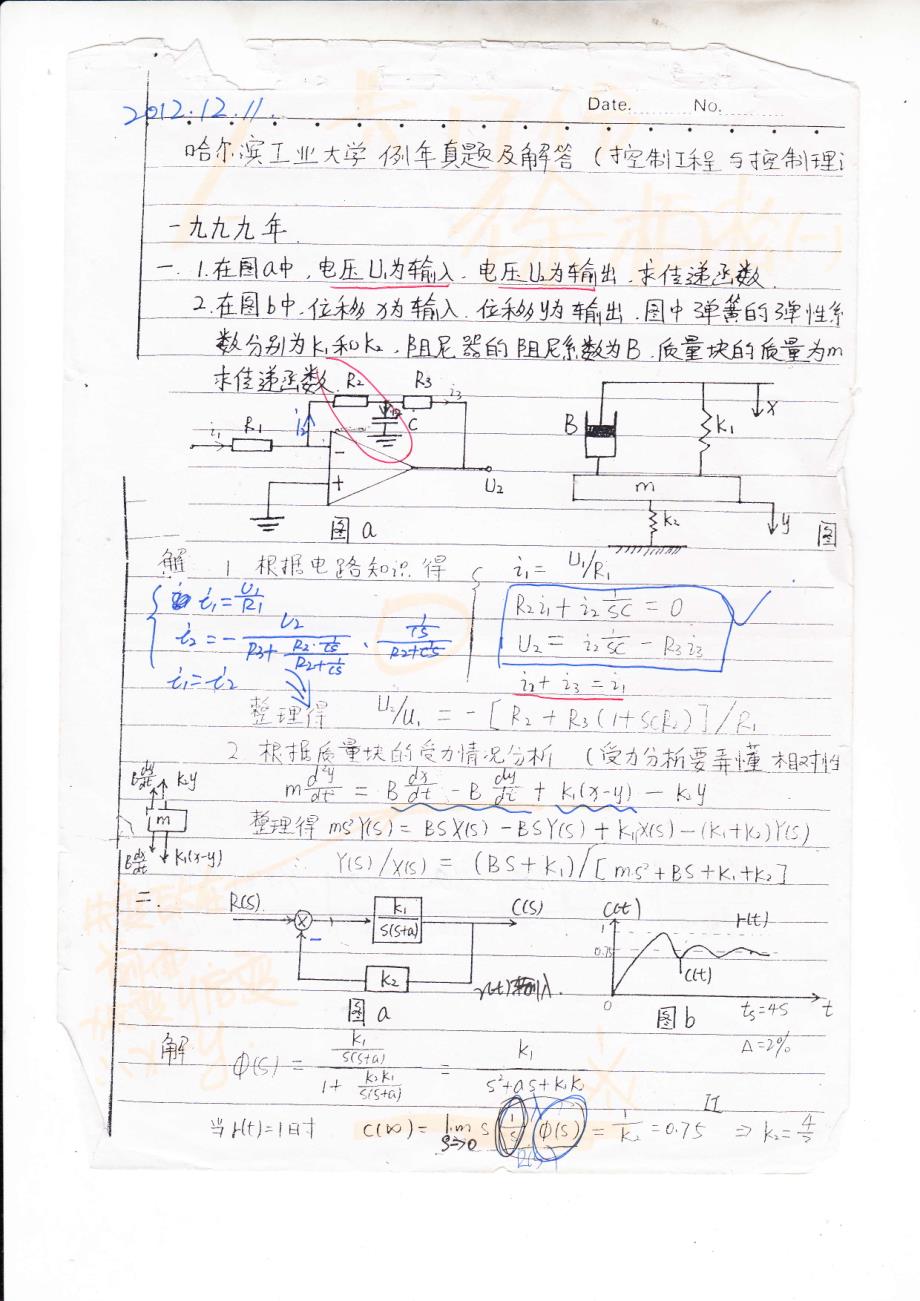 Date. No.
2012.12.11.
哈尔滨工业大学 例年真题及解答 (控制工程与控制理
一九九九年
一. 1.在图a中,电压U1为输入,电压U2为输出,求传递函数.
2.在图b中,位移x为输入,位移y为输出,图中弹簧的弹性系
数分别为k1和k2,阻尼器的阻尼系数为B,质量块的质量为m
求传递函数.
R2 R3 i3
R1 i1 i2 C
- +
U2
图a
B k1 x
m
k2 y
图
解 1 根据电路知识得
i1 = U1/R1
R2i1 + i2 1/SC = 0
U2 = i2 1/SC - R3i3
i2 + i3 = i1
i1 = U1/R1
i2 = - U2/(R3 + (R2·1/CS)/(R2+1/CS)) · (1/CS)/(R2+1/CS)
i1 = i2
整理得 U2/U1 = -[R2+R3(1+SCR2)]/R1
2 根据质量块的受力情况分析 (受力分析要弄懂 相对性
m d²y/dt² = B dx/dt - B dy/dt + k1(x-y) - k2y
B dy/dt k2y
m
B dx/dt k1(x-y)
整理得 ms²Y(s) = BSX(s) - BSY(s) + k1X(s) - (k1+k2)Y(s)
∴ Y(s)/X(s) = (BS+k1)/[ms²+BS+k1+k2]
二.
R(s) k1/s(s+a) C(s)
-
k2
图a
C(t)
1 r(t)
0.75
C(t)
0 t
图b ts=4s
Δ=2%
解 Φ(s) = (k1/s(s+a))/(1 + k2k1/s(s+a)) = k1/(s²+as+k1k2)
当r(t)=1时 c(∞) = lim s→0 s 1/s Φ(s) = 1/k2 = 0.75 ⇒ k2 = 4/3